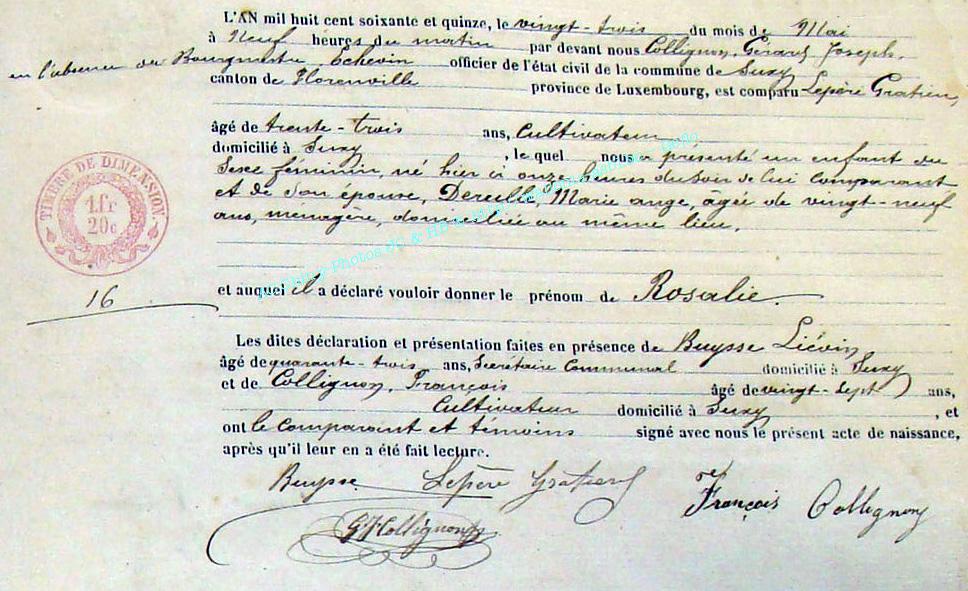 L'AN mil huit cent soixante et quinze, le vingt-trois du mois de Mai
à Neuf heures du matin par devant nous Collignon, Gérard Joseph,
en l'absence du Bourgmestre, Echevin officier de l'état civil de la commune de Suxy
canton de Florenville province de Luxembourg, est comparu Lepère Gratien,
âgé de trente-trois ans, Cultivateur
domicilié à Suxy, le quel nous a présenté un enfant du
Sexe féminin, né hier à onze heures du soir de lui comparant
et de son épouse, Dereille, Marie ange, âgée de vingt-neuf
ans, menagère, domiciliée au même lieu.
TIMBRE DE DIMENSION.
1.fr
20c
16
et auquel il a déclaré vouloir donner le prénom de Rosalie.
Les dites déclaration et présentation faites en présence de Buysse Liévin
âgé de quarante-trois ans, Secrétaire Communal domicilié à Suxy
et de Collignon, François âgé de vingt-sept ans,
Cultivateur domicilié à Suxy, et
ont le comparant et témoins signé avec nous le présent acte de naissance,
après qu'il leur en a été fait lecture.
Buysse Lepère Gratien François Collignon
GJCollignon